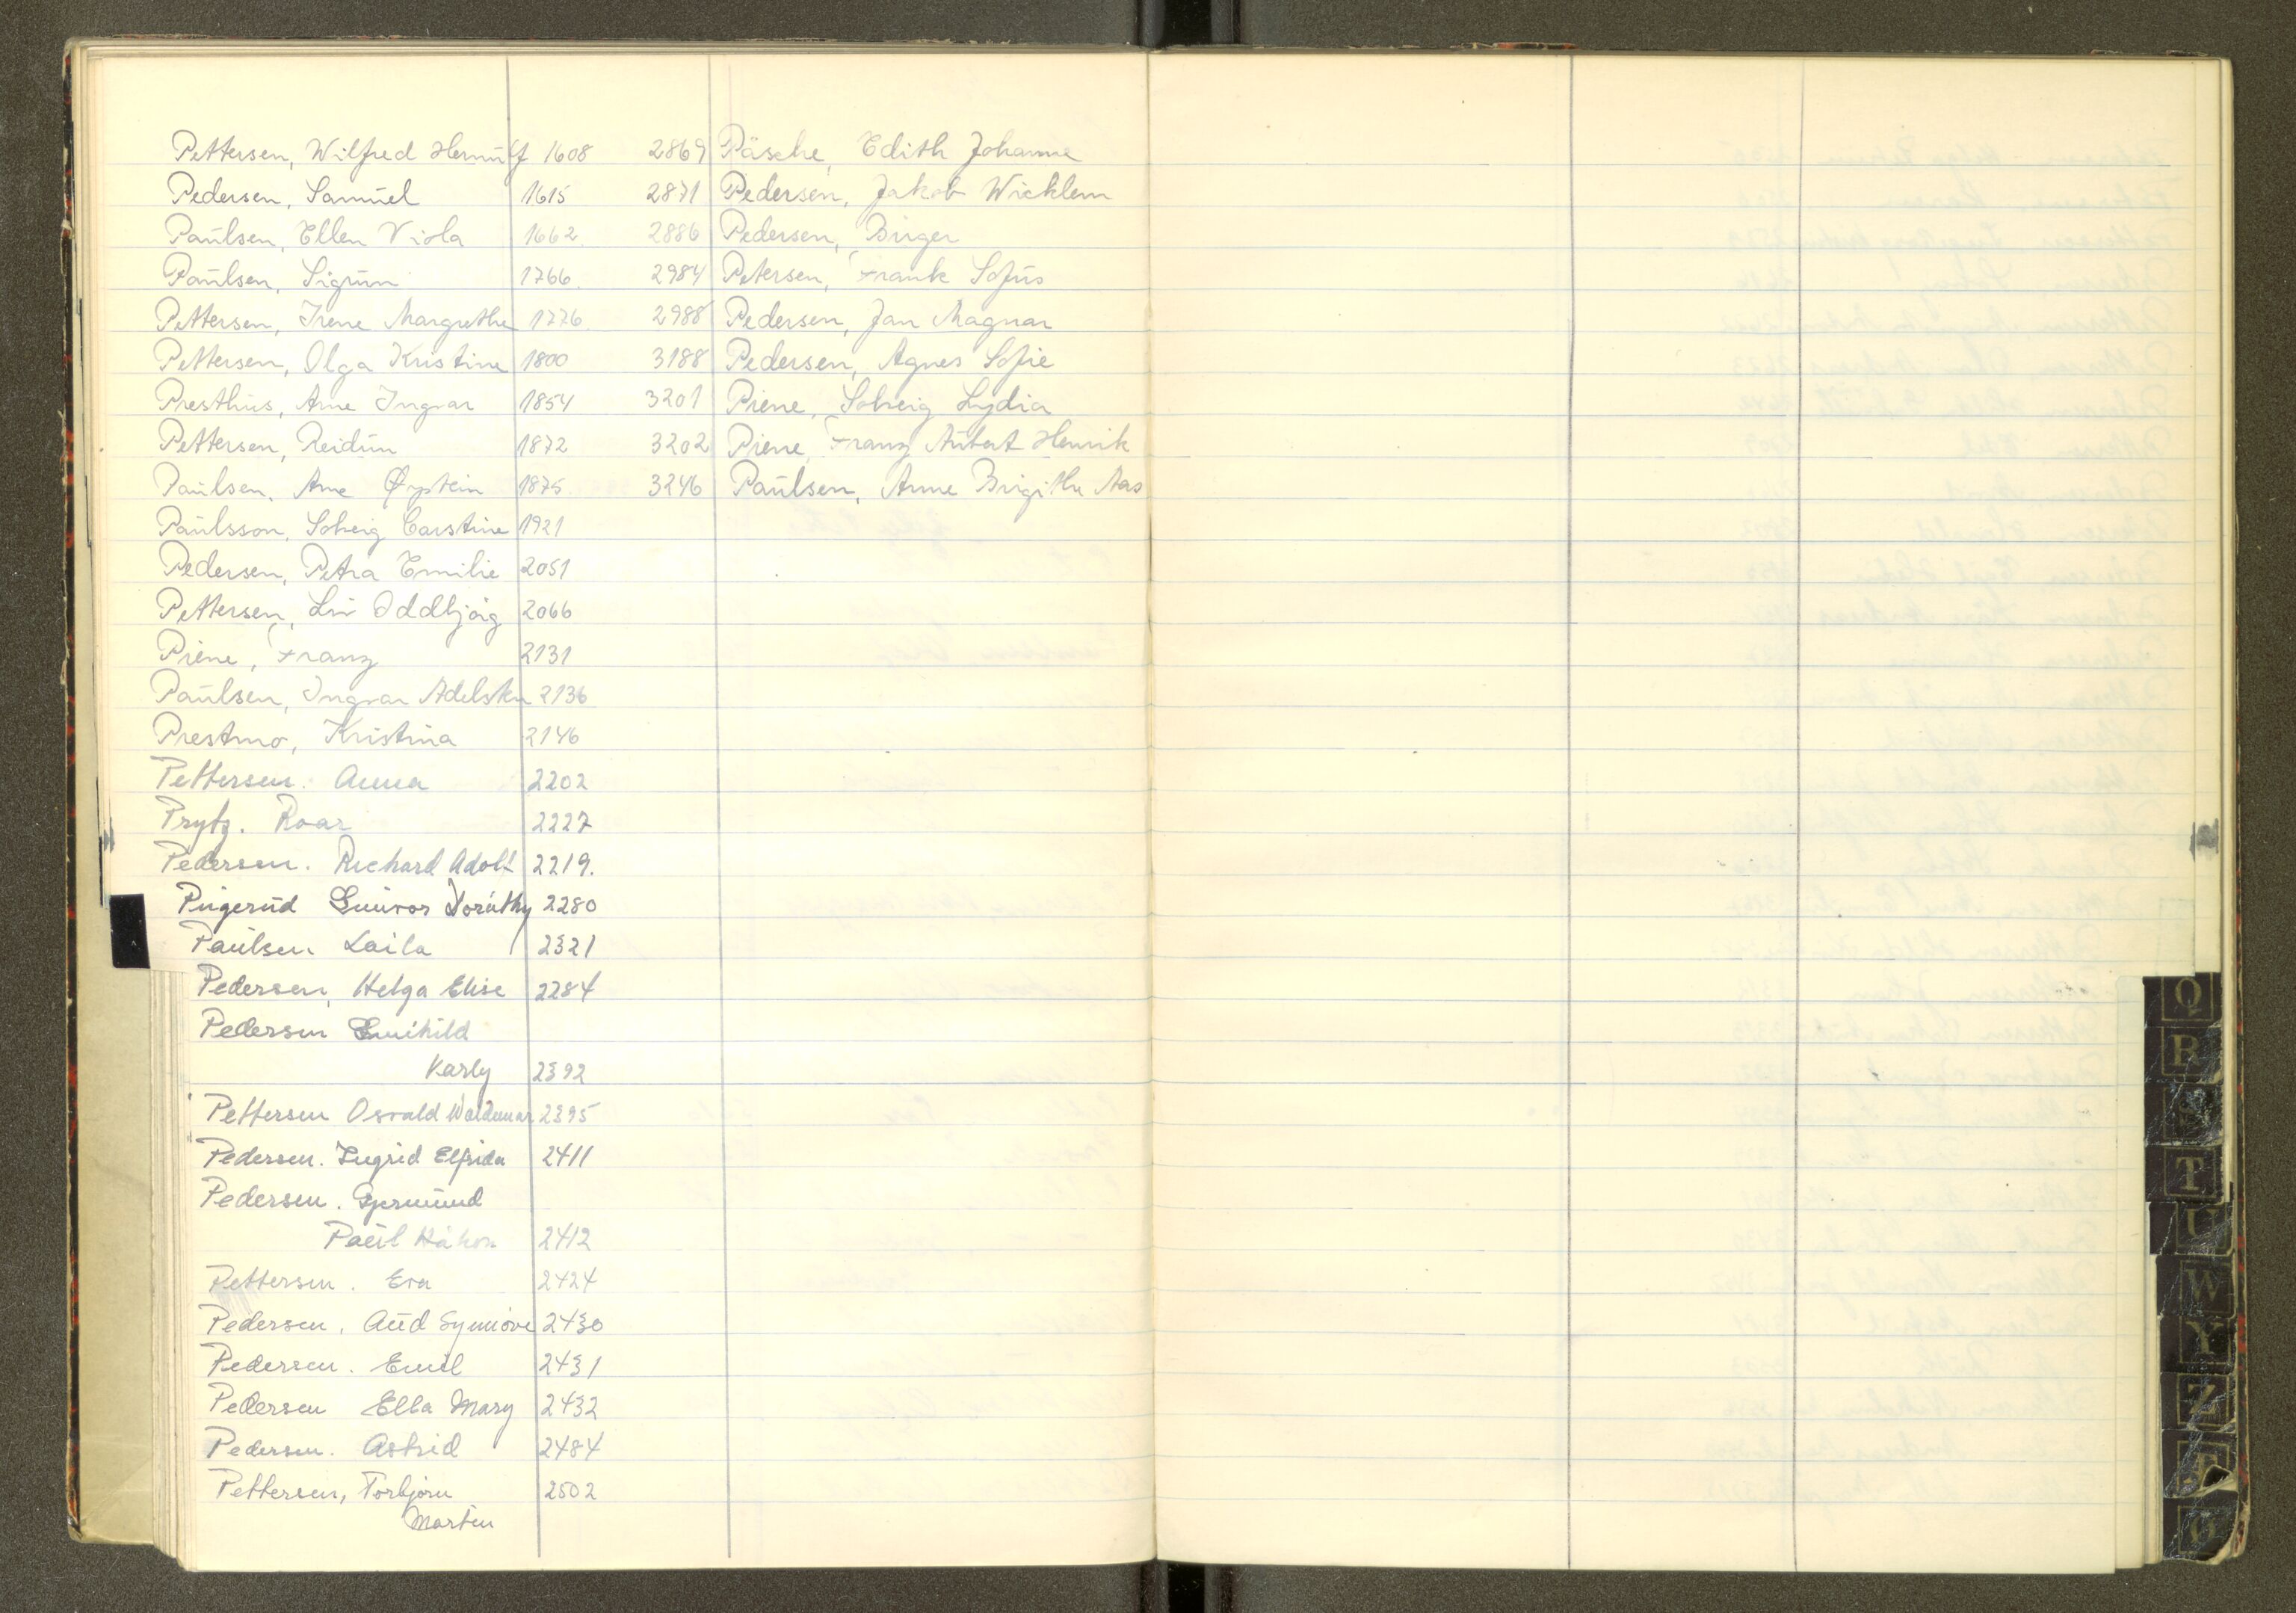 Pettersen, Wilfred Hernulf 1608
Pedersen, Samuel 1615
Paulsen, Ellen Viola 1662
Paulsen, Sigrun 1766
Pettersen, Irene Margrethe 1776
Pettersen, Olga Kristine 1800
Presthus, Arne Ingvar 1854
Pettersen, Reidun 1872
Paulsen, Arne Øystein 1875
Paulsson, Solveig Carstine 1921
Pedersen, Petra Emilie 2051
Pettersen, Liv Oddbjørg 2066
Piene, Franz 2131
Paulsen, Ingvar Adelsten 2136
Prestmo, Kristina 2146
Pettersen. Anna 2202
Prytz. Roar 2227
Pedersen. Richard Adolf 2219.
Pugerud Gunvor Dorothy 2280
Paulsen Laila 2321
Pedersen, Helga Elise 2284
Pedersen Gunhild
Karly 2392
Pettersen Osvald Waldemar 2395
Pedersen. Ingrid Elfrida 2411
Pedersen. Gjermund
Paul Håkon 2412
Pettersen. Eva 2424
Pedersen. Aud Synnøve 2430
Pedersen. Emil 2431
Pedersen Ella Mary 2432
Pedersen. Astrid 2484
Pettersen, Torbjørn 2502
Martin
2869 Päsche, Edith Johanne
2871 Pedersen, Jakob Wicklem
2886 Pedersen, Birger
2984 Petersen, Frank Sofus
2988 Pedersen, Jan Magnar
3188 Pedersen, Agnes Sofie
3201 Piene, Solveig Lydia
3202 Piene, Franz Aubert Henrik
3246 Paulsen, Anne Brigithe Aas
Q
R
S
T
U
W
Y
Z